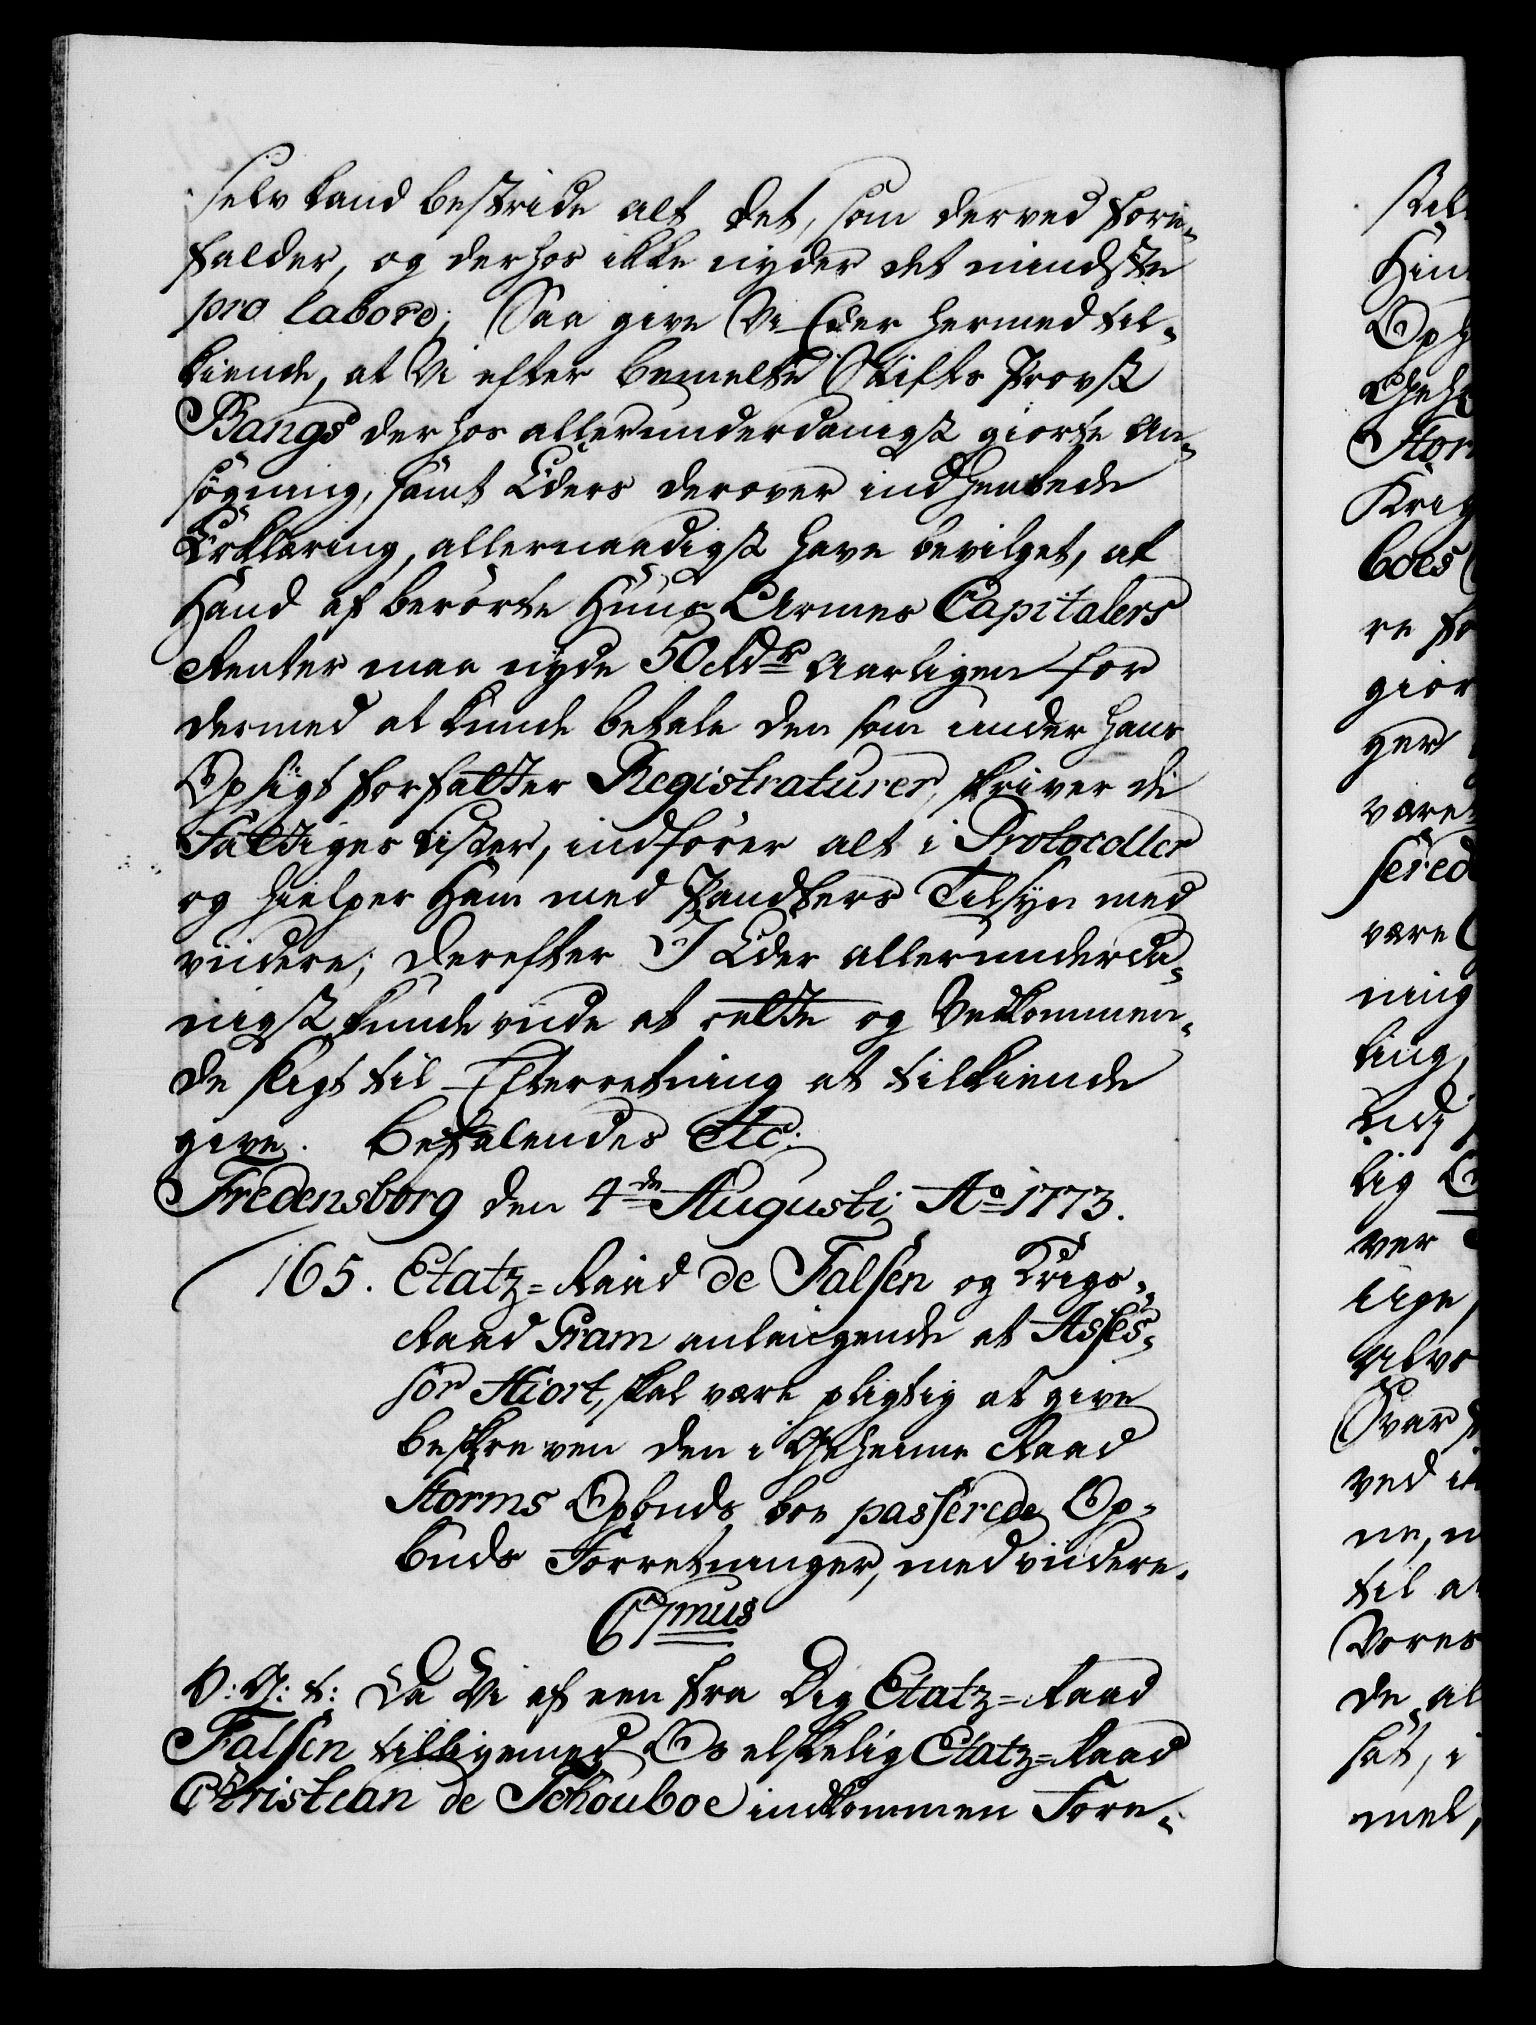 selv kand bestride alt det, som derved fore-
falder, og derhos ikke nyder det mindste
pro labore; Saa give Vi Eder hermed til-
kiende, at Vi efter bemelte Stifts Provst
Bangs derhos allerunderdanigst giorte An-
søgning, samt Eders derover indhentede
Erklæring, allernaadigst have bevilget, at
Hand af berørte Huus Armes Capitalers
Renter maa nyde 50 Rdr Aarligen for
dermed at kunde betale den som under hans
Opsigt forfatter Registraturer, skriver de
Fattiges Lister, indfører alt i Protocoller
og hielper Ham med Pandters Tilsyn med
viidere; Derefter I Eder allerunderda-
nigst kunde vide at rette og Vedkommen-
de sligt til Efterretning at tilkiende
give. Befalendes Etc:
Fredensborg den 4de Augusti Ao 1773.
165. Etatz-Raad de Falsen og Krigs-
Raad Gram anlangende at Asses-
sor Hiort, skal være pligtig at give
beskreven den i Geheime Raad
Storms Opbuds boe passerede Op-
buds Forretninger, med viidere.
C7mus
V: G: T: Da Vi af een fra Dig Etatz-Raad
Falsen tilligemed Os elskelig Etatz-Raad
Christian de Schouboe indkommen Fore-